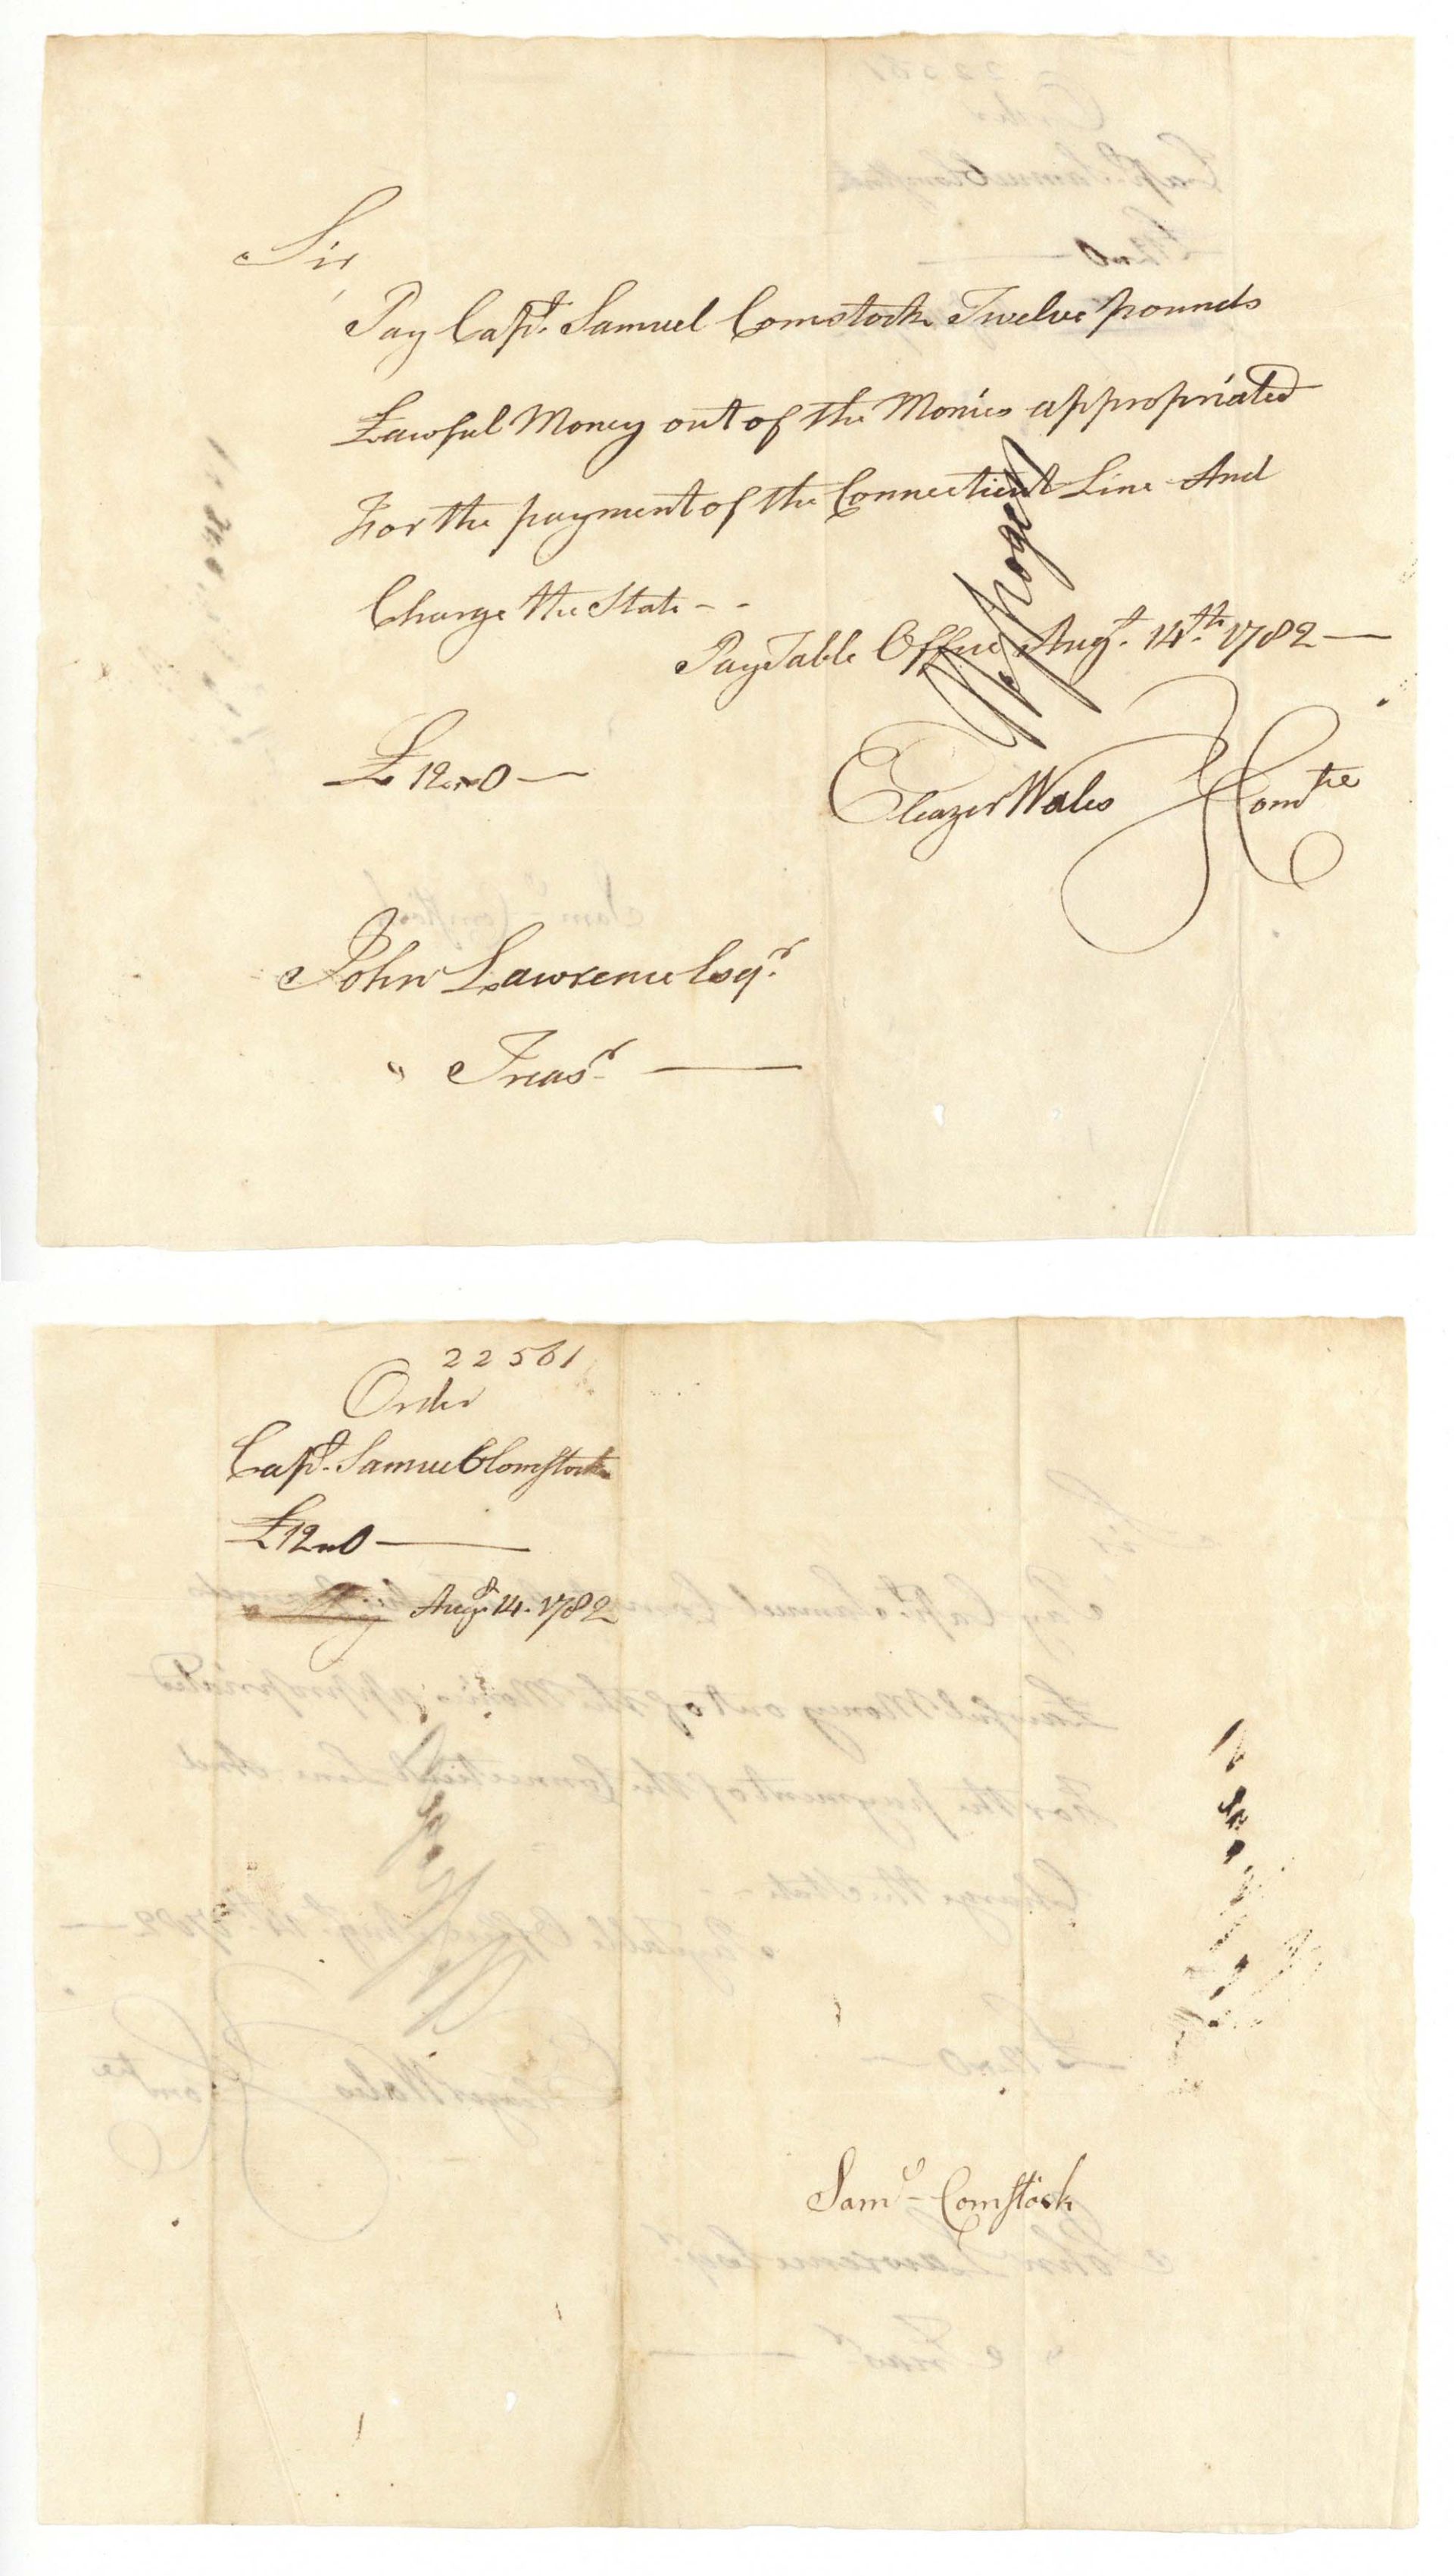 Sir,
Pay Capt. Samuel Comstock Twelve pounds
Lawful Money out of the Monies appropriated
For the payment of the Connecticut Line And
Charge the State - -
Pay Table Office Augt. 14th. 1782 —
£ 12.. 0 —
Eleazer Wales } Comtee
John Lawrence Esqr.
" Treasr. —
22561
Order
Capt. Samuel Comstock
£12.. 0 —
Augt. 14. 1782
Saml. Comstock